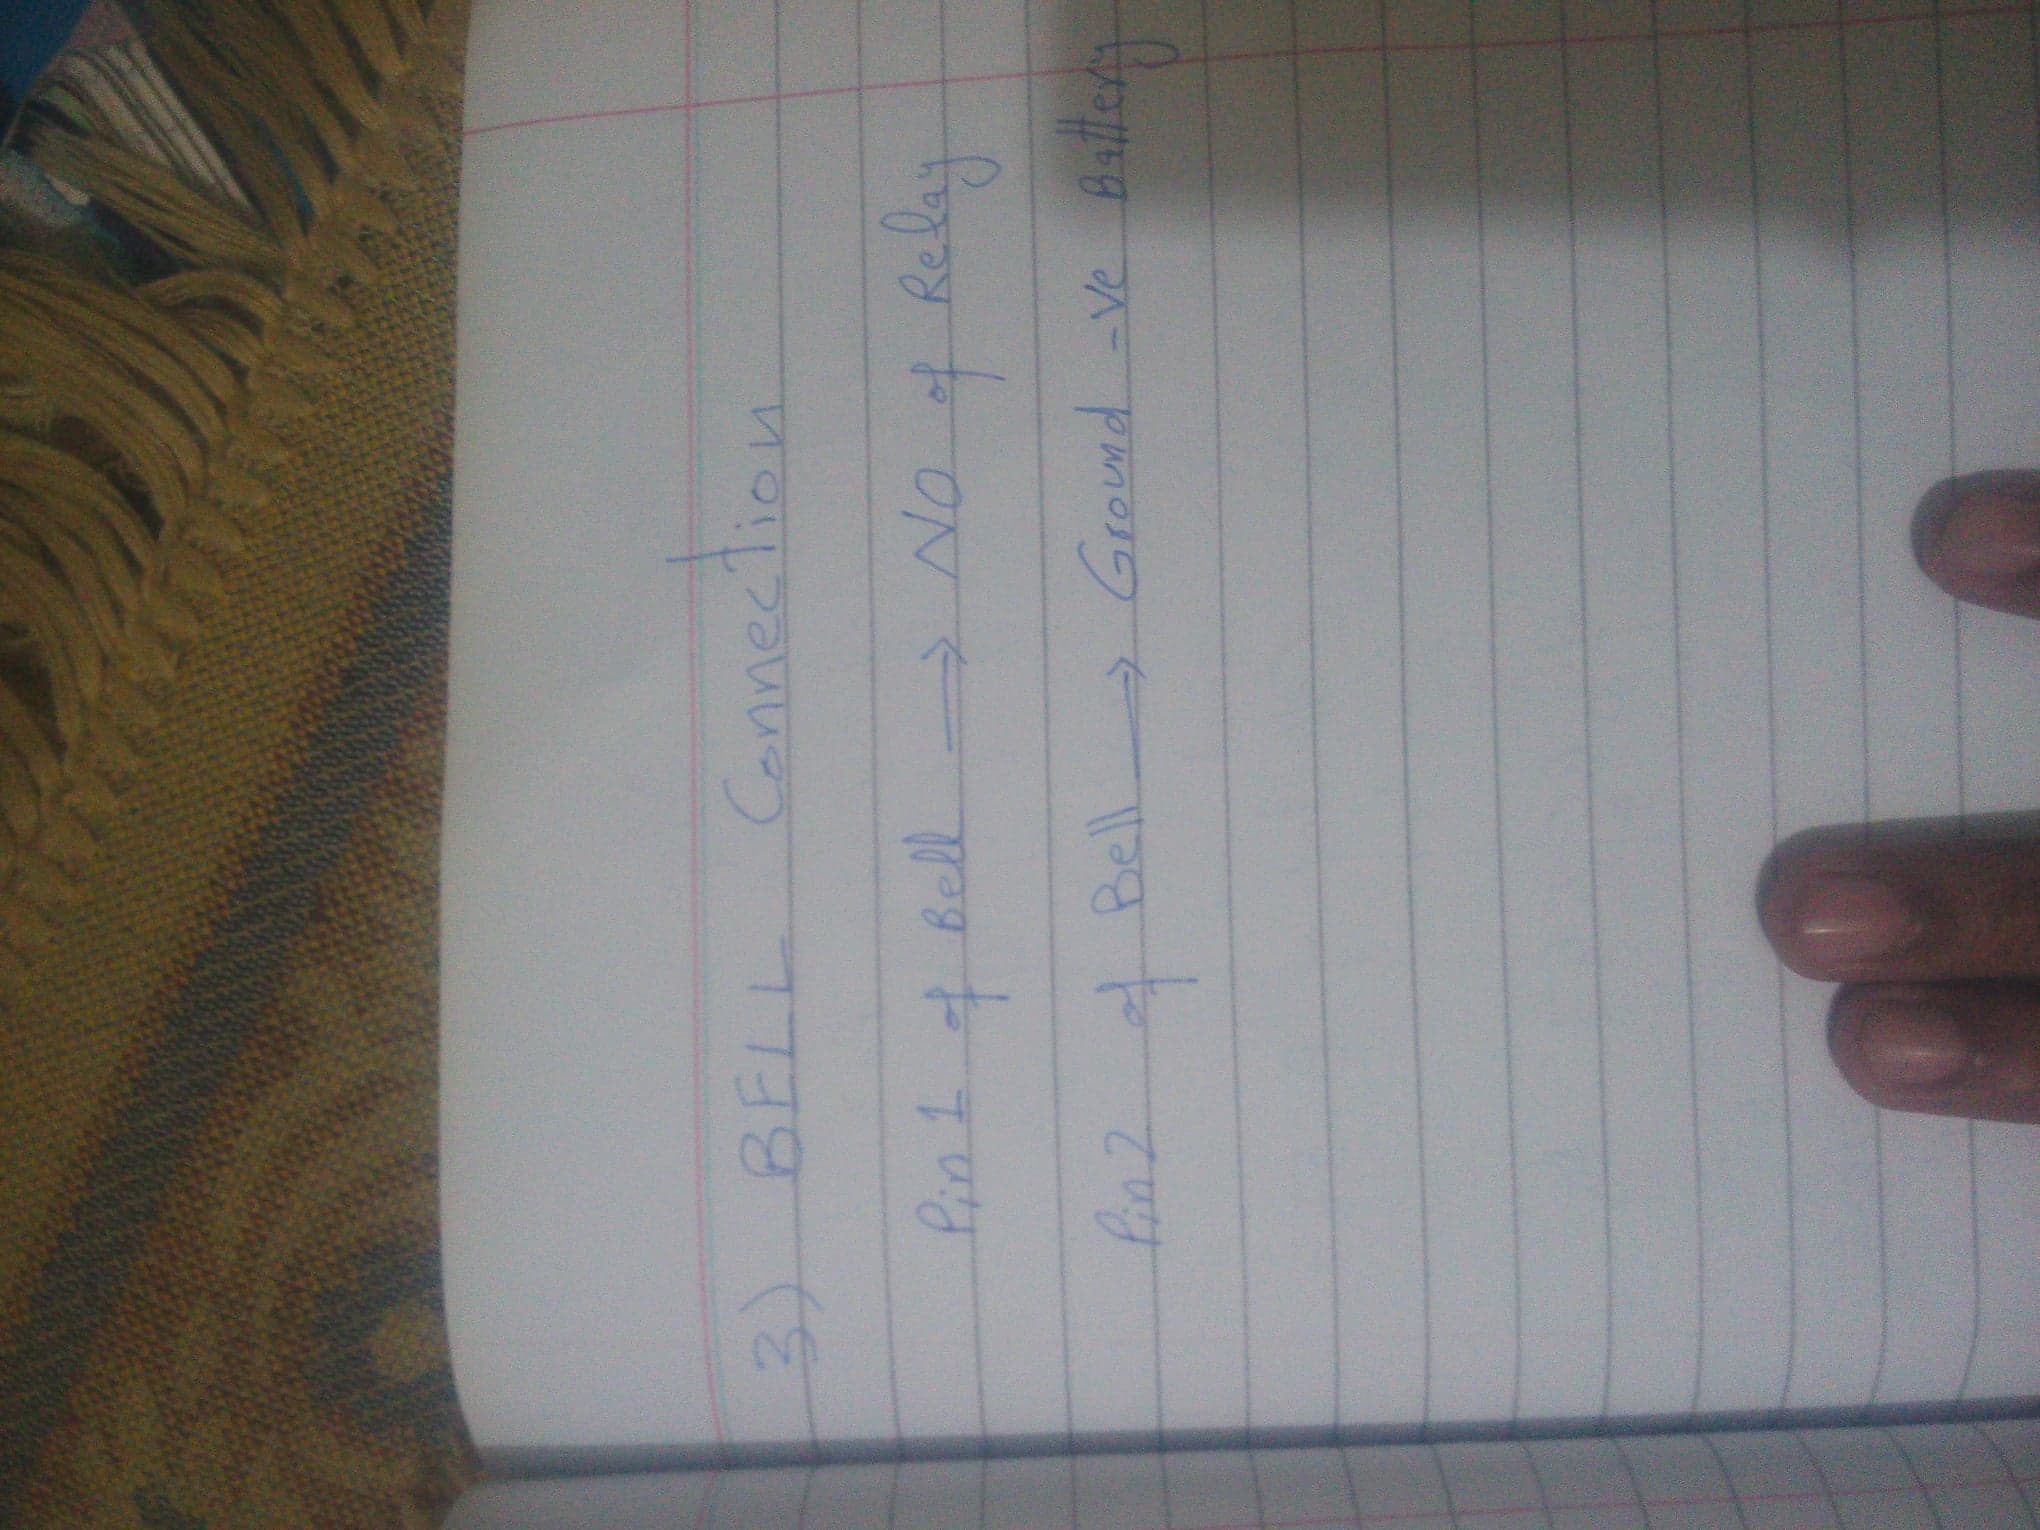 3) BELL Connection
Pin 1 of Bell → NO of Relay
Pin2 of Bell → Ground -ve Battery